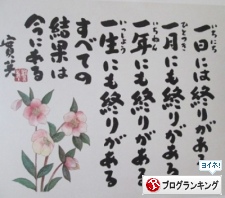 一日には終りがある
一月にも終りがある
一年にも終りがある
一生にも終りがある
すべての
結果は
今にある
いちにち
ひとつき
いちねん
いっしょう
ヨイネ!
ブログランキング